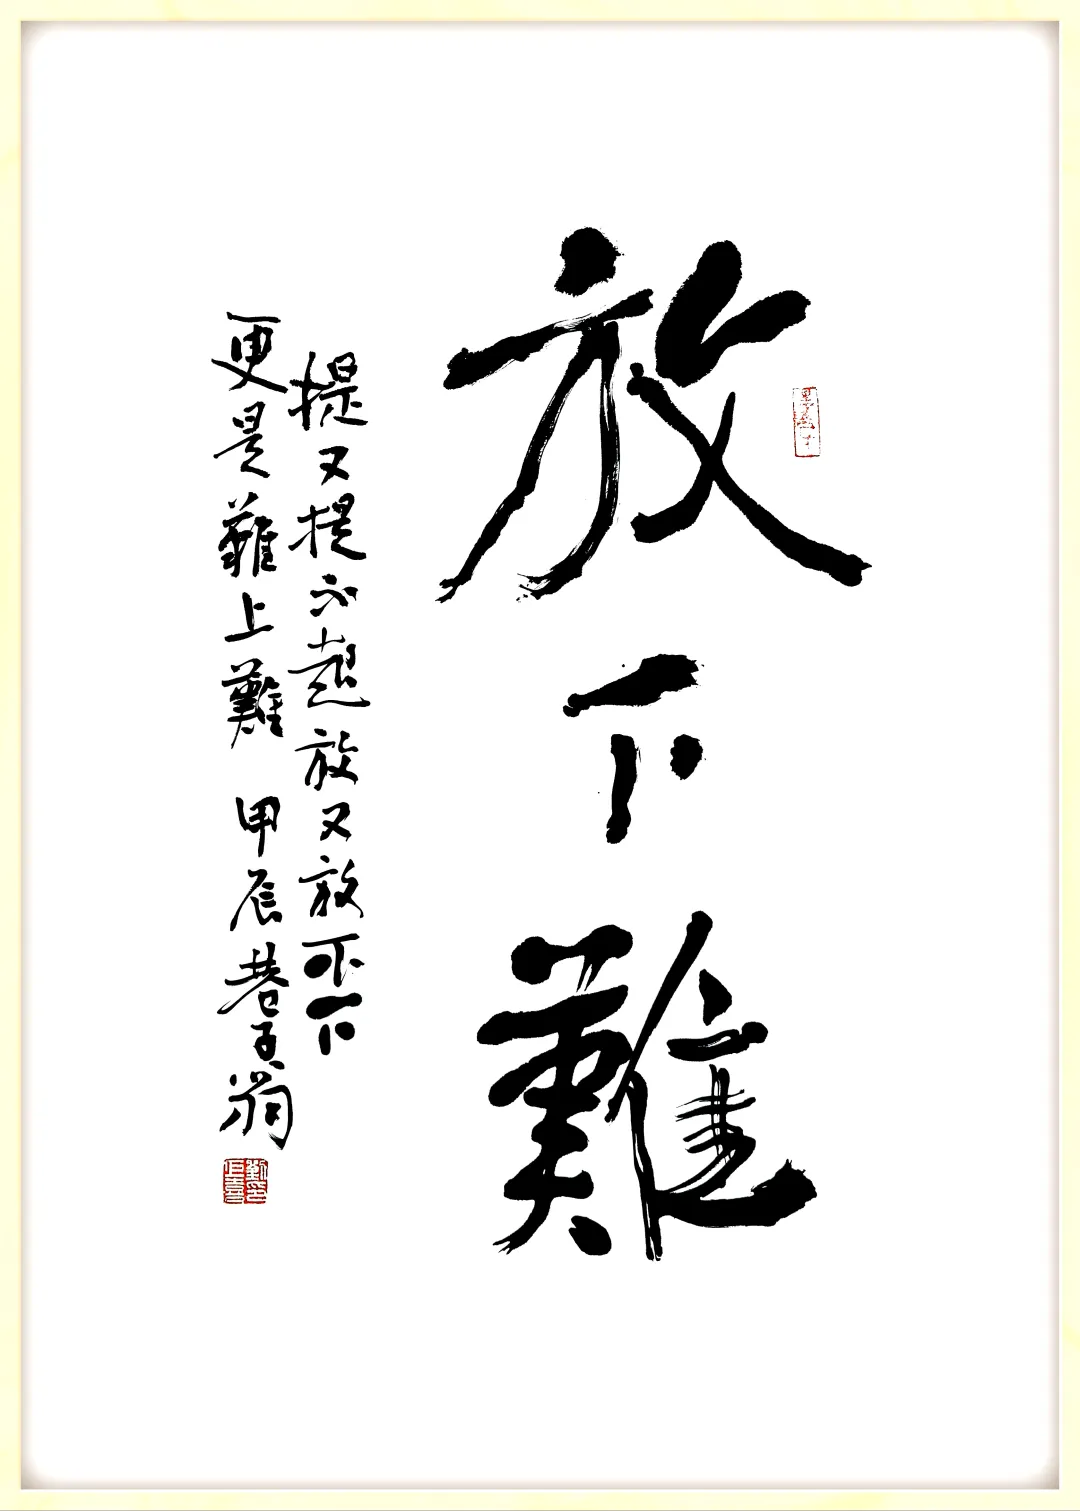 放下難
提又提不起放又放不下
更是難上難 甲辰巷子翁